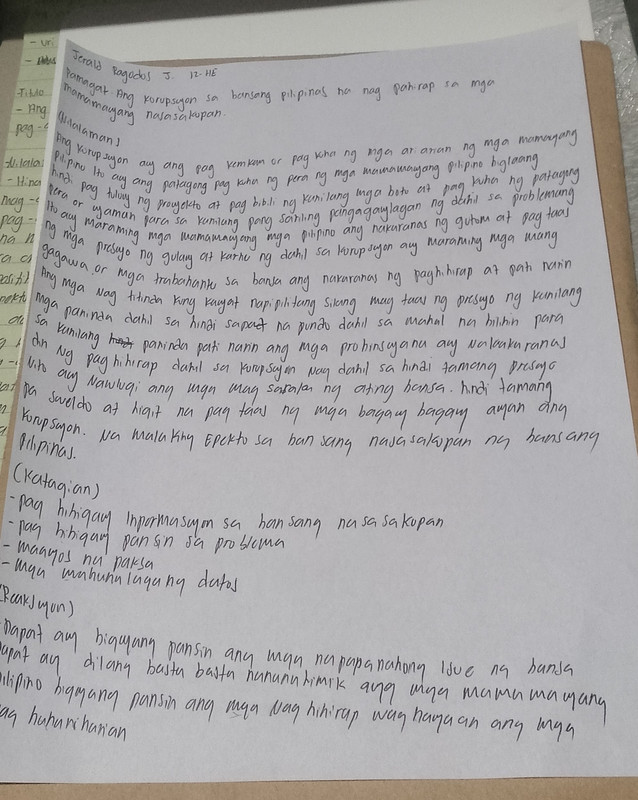 - Uri
Jerald Ragodos J. 12-HE
Pamagat: Ang korupsyon sa bansang pilipinas na nag pahirap sa mga
mamamayang nasasakupan.
(Nilalaman)
Ang korupsyon ay ang pag kemkam or pag kuha ng mga ari arian ng mga mamayang
pilipino Ito ay ang patagong pag kuha ng pera ng mga mamamayang pilipino biglaang
hindi pag tuloy ng proyekto at pag bibili ng kanilang mga boto at pag kuha ng patagong
pera or yaman para sa kanilang pang sariling pangagaylagan ng dahil sa problemang
Ito ay maraming mga mamamayang mga pilipino ang nakaranas ng gutom at pag taas
ng mga presyo ng gulay at karne ng dahil sa korupsyon ay maraming mga mang
gagawa or mga trabahante sa bansa ang nakaranas ng paghihirap at pati narin
Ang mga nag titinda kung kayat napipilitang silang mag taas ng presyo ng kanilang
mga paninda dahil sa hindi sapat na pundo dahil sa mahal na bilihin para
sa kanilang paninda pati narin ang mga prohinsyano ay nakakaranas
din ng pag hihirap dahil sa korupsyon Nag dahil sa hindi tamang presyo
nito ay nawlugi ang mga mag sasaka ng ating bansa. hindi tamang
pa sweldo at higit na pag taas ng mga bagay bagay ayan ang
korupsyon. Na malaking Epekto sa bansang nasasakupan ng bansang
pilipinas.
(Katagian)
- pag bibigay Inpormasyon sa bansang nasasakupan
- pag bibigay pansin sa problema
- maayos na paksa
- mga mahuhalagang datos
(Reaksyon)
Dapat ay bigyang pansin ang mga napapanahong Isue ng bansa
dapat ay dilang basta basta nananahimik ang mga mamamayang
pilipino bigyang pansin ang mga nag hihirap wag hayaan ang mga
nag hahariharian